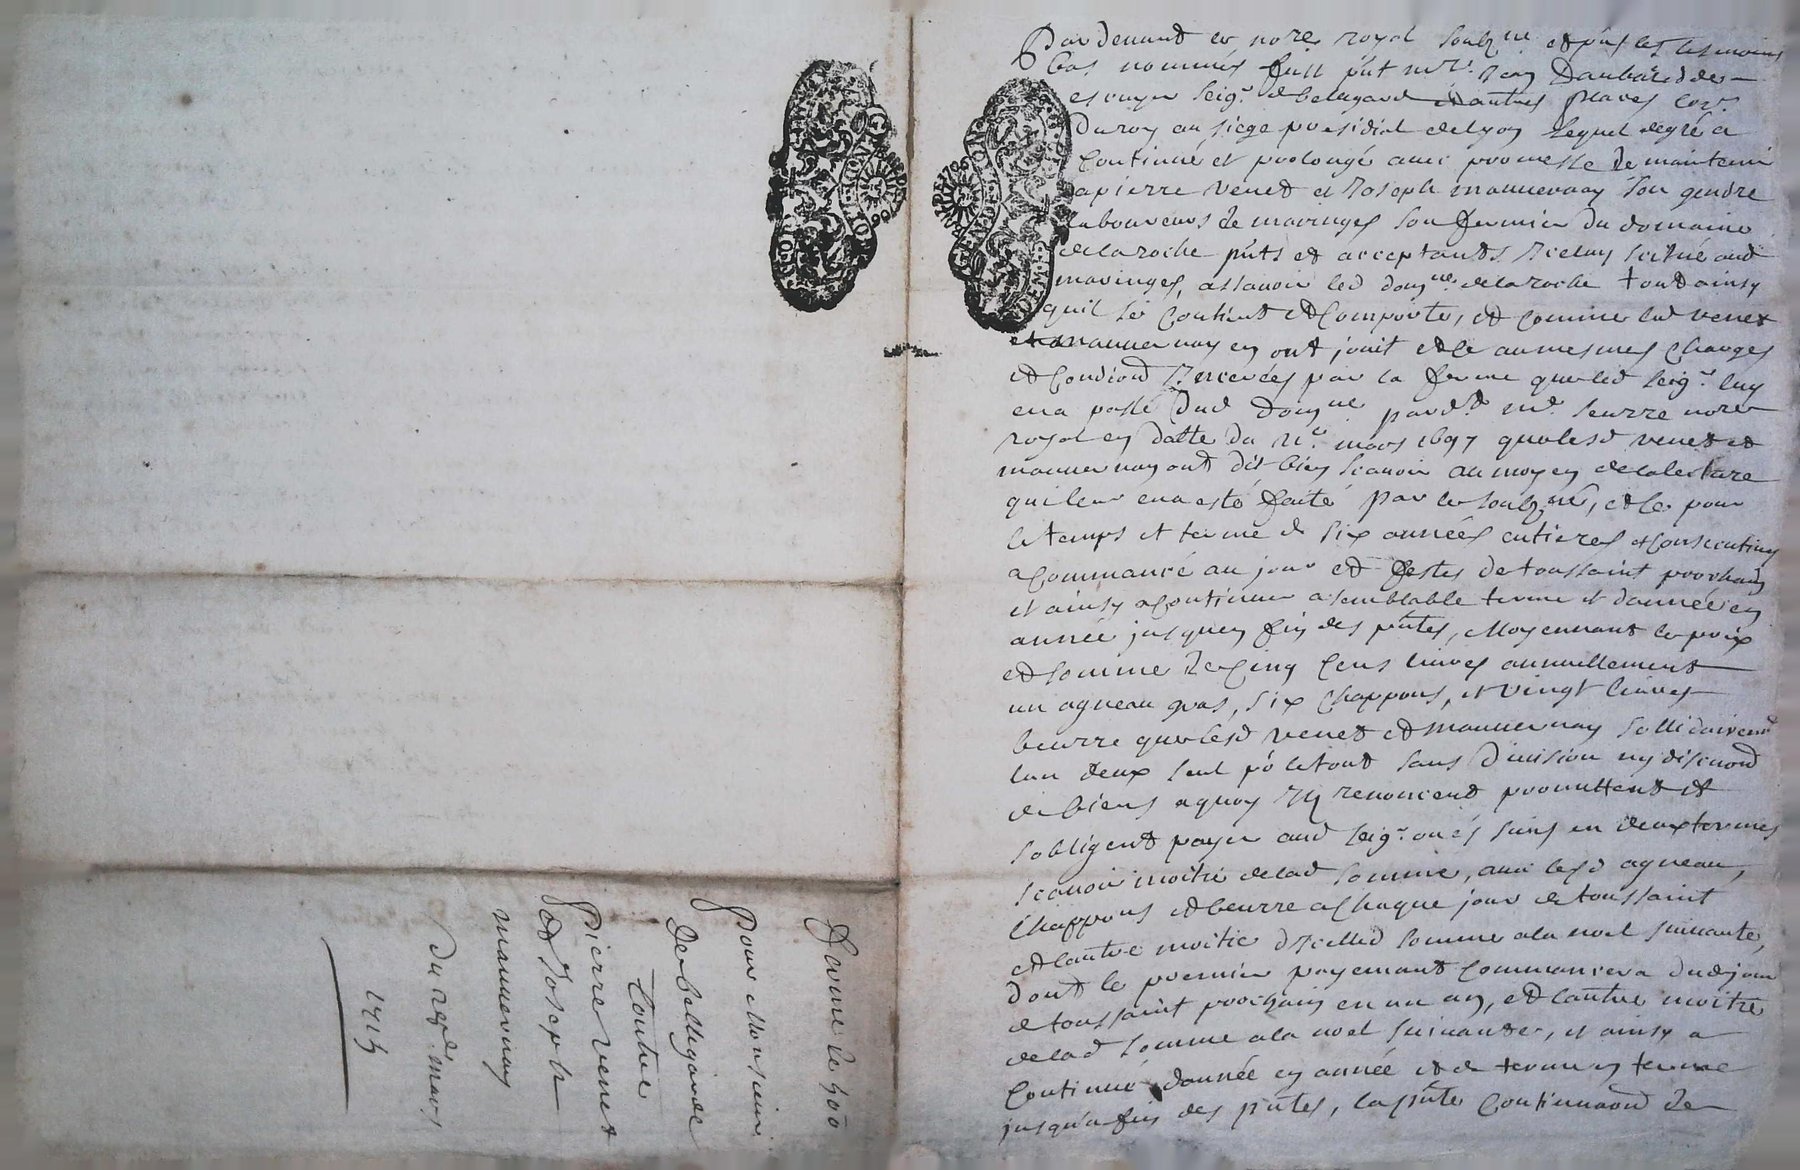 Pardevant le no.re royal soubz.né et pñt les tesmoins
bas nommés fust pñt m.re Jean Daubarede
escuyer seig.r de belagarde et autres places con.r
Du roy au siege presidial de lyon lequel de gré a
Continué et prolongé avec promesse de maintenir
a pierre venet et Joseph mauvernay son gendre
laboureurs de maringes son fermier du domaine
de la roche pñts et acceptants Iceluy scitué aud
maringes, assavoir led dom.ne de la roche tout ainsy
quil se Contient et Comporte, et comme led venet
et mauvernay en ont jouit et ce aux mesmes Charges
et Condiond Inserées par la ferme que led seig.r luy
en a passé dud Dom.ne pard.t m.e seurre no.re
royal en datte du mars 1697 que lesd venet et
mauvernay ont dit bien scavoir au moyen de la lecture
qui leur en a esté faite par le soubz.né, et ce pour
le temps et terme de six années entieres et Consecutives
a Commancé au jour et festes de toussaint prochain
et ainsy a Continuer a semblable terme et d'année en
année jusques fin des pñtes, Moyennant le prix
et somme de Cinq Cens livres annuellement
un agneau gras, six Chappons, et vingt livres
beurre que lesd venet et mauvernay sollidairem.t
lun deux seul p.r le tout sans Division ny discuond
de biens a quoy Ilz renoncent promettent et
s'obligent payer aud seig.r ou és siens en deux termes
scavoir moitié de lad somme, avec lesd agneau,
Chappons et beurre a Chaque jour de toussaint
et lautre moitié d'Icelled somme a la noel suivante,
dont le premier payemant Commancera dud jour
de toussaint prochain en un an, et lautre moitié
de lad somme a la noel suivante, et ainsy a
Continuer d'année en année et de terme en terme
jusqu'a fin des pñtes, la pñte Continuaond de
ferme de 500
Pour Monsieur
De bellegarde
Contre
Pierre venet
et Joseph
mauvernay
Du mars
1715